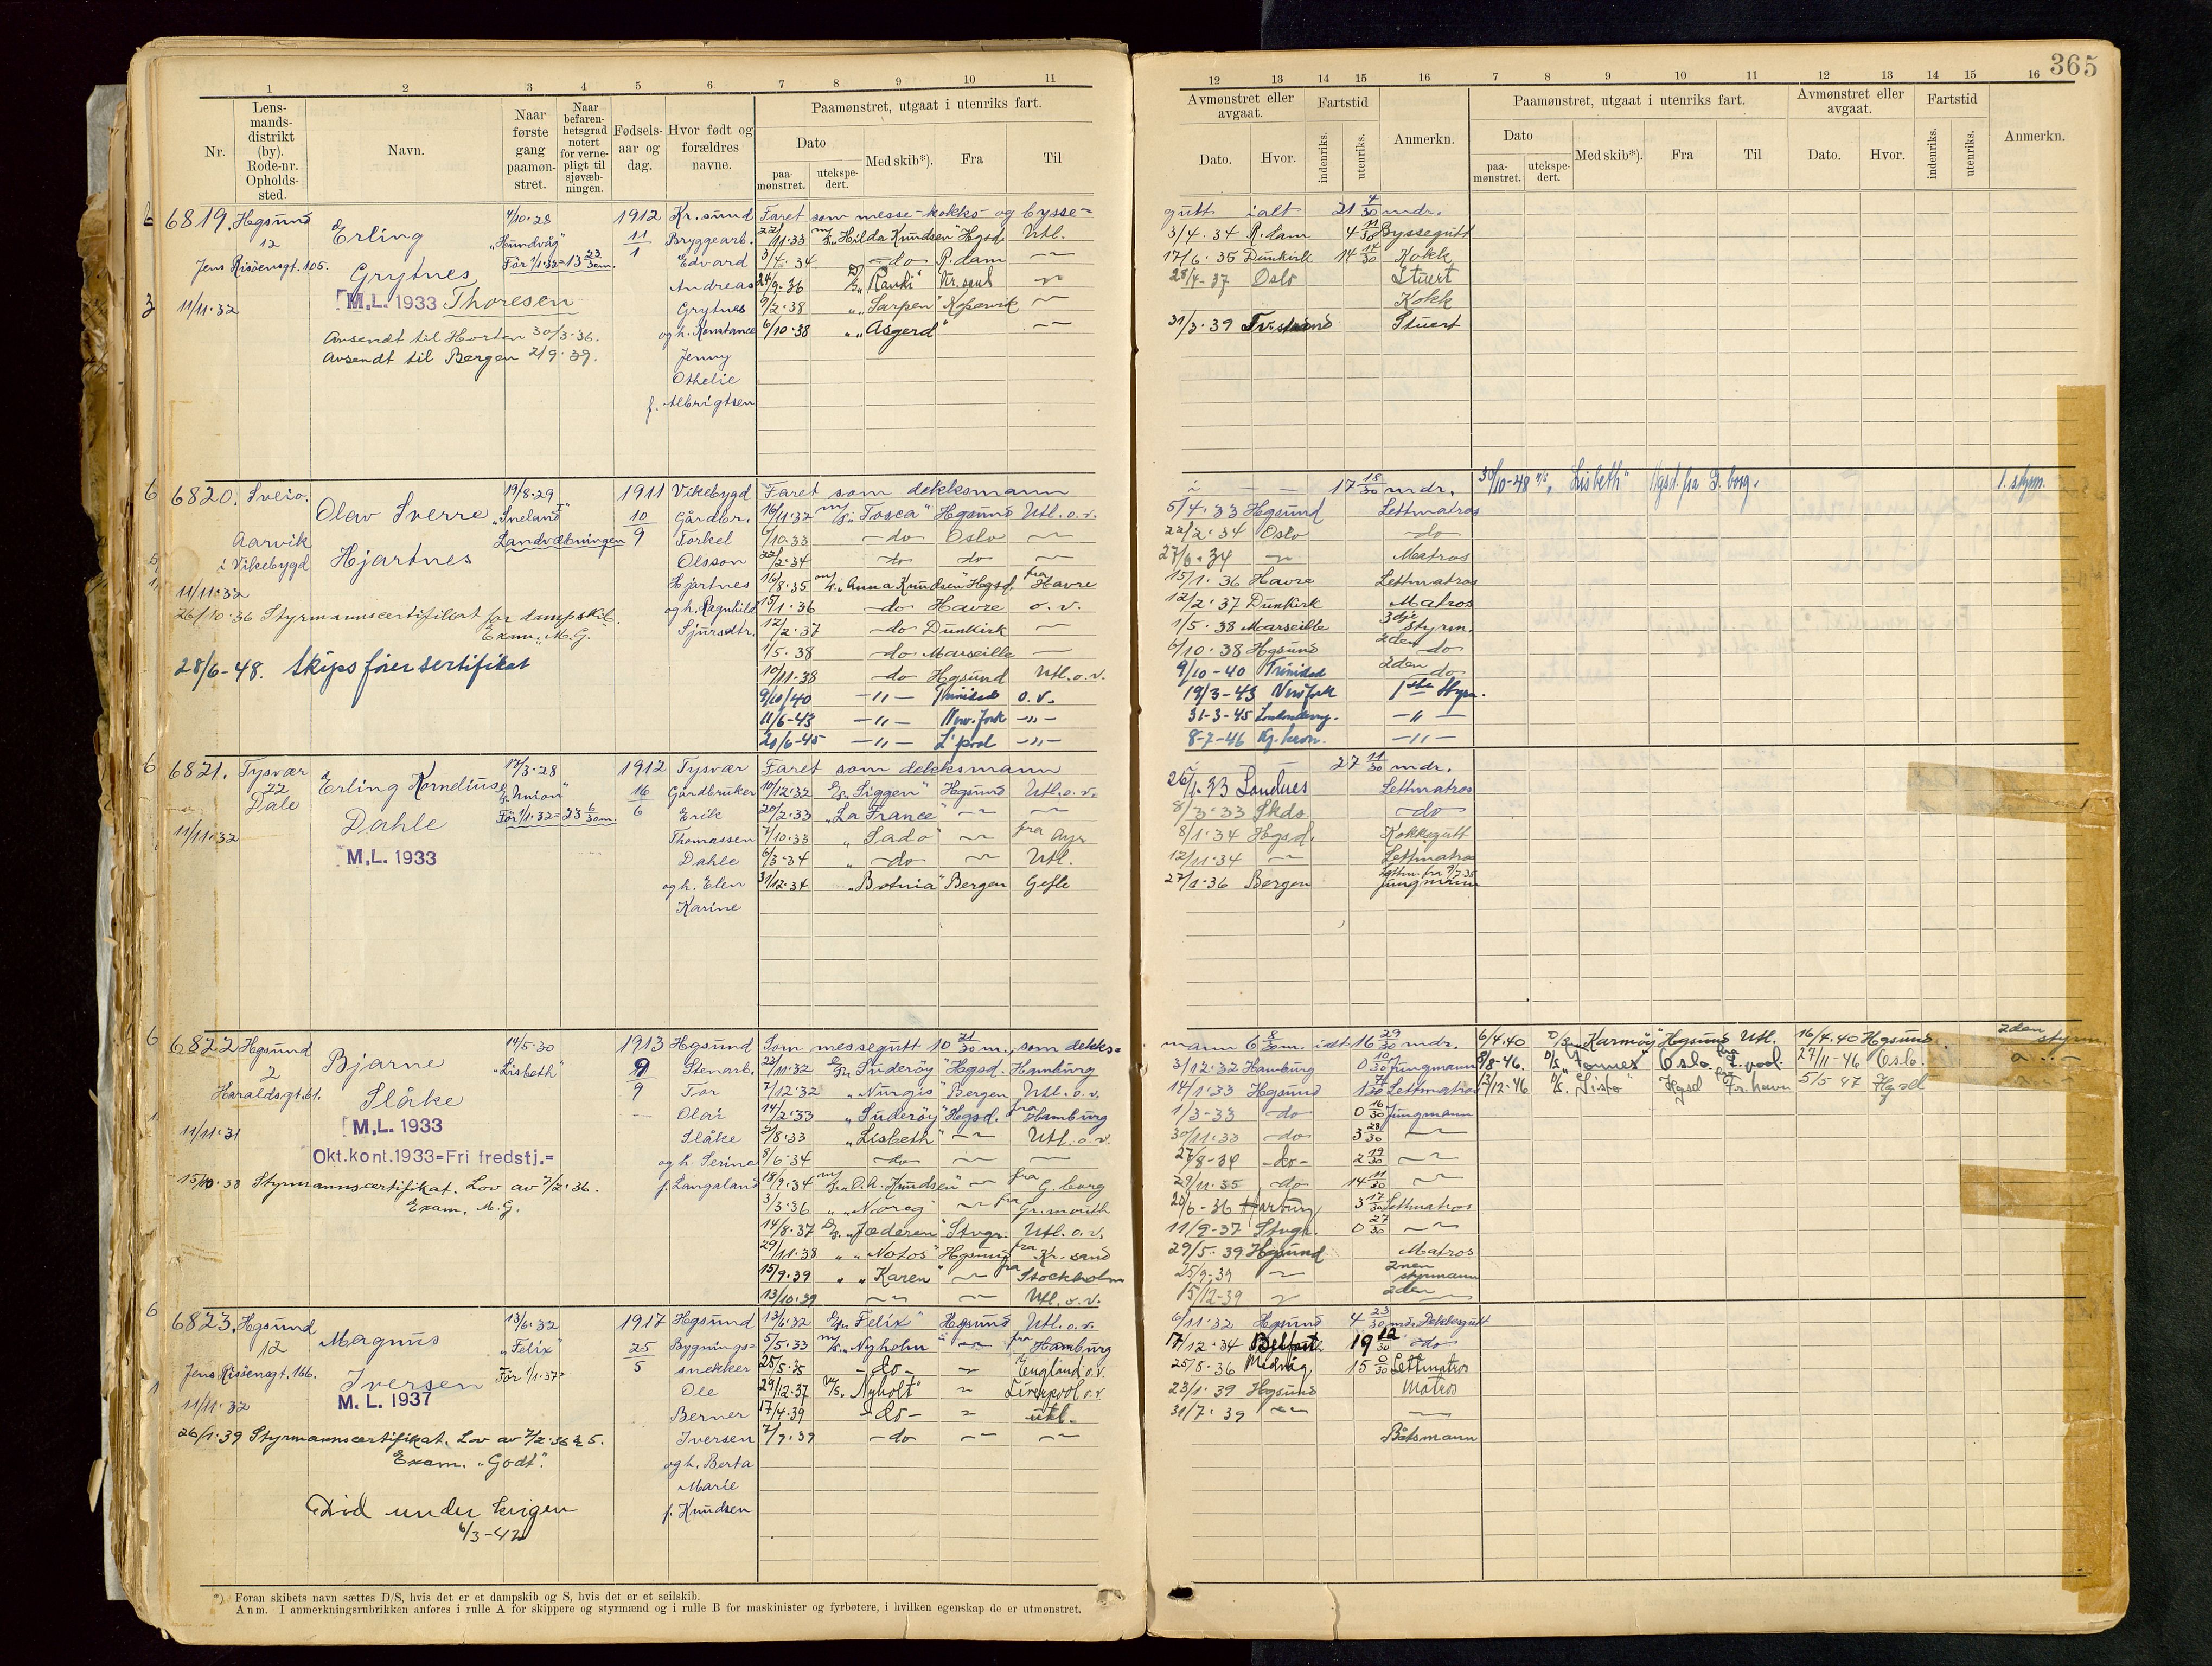 365
1 2 3 4 5 6 7 8 9 10 11
Nr.
Lens-
mands-
distrikt
(by).
Rode-nr.
Opholds-
sted.
Navn.
Naar
første
gang
paamøn-
stret.
Naar
befaren-
hetsgrad
notert
for verne-
pligt til
sjøvæb-
ningen.
Fødsels-
aar og
dag.
Hvor født og
forældres
navne.
Paamønstret, utgaat i utenriks fart.
Dato
paa-
mønstret.
utekspe-
dert.
Med skib*).
Fra
Til
12 13 14 15 16 7 8 9 10 11 12 13 14 15 16
Avmønstret eller
avgaat.
Dato.
Hvor.
Fartstid
indenriks.
utenriks.
Anmerkn.
Paamønstret, utgaat i utenriks fart.
Dato
paa-
mønstret.
utekspe-
dert.
Med skib*).
Fra
Til
Avmønstret eller
avgaat.
Dato.
Hvor.
Fartstid
indenriks.
utenriks.
Anmerkn.
6819. Hgsund
12
Jens Risöensgt. 105.
11/11·32
Erling
Grytnes
M.L. 1933 Thoresen
Avsendt til Horten 30/3·36.
Avsendt til Bergen 2/9·39.
4/10·28
"Hundvåg"
Før 1/1·32=13 23/30 m.
1912
11
1
Kr.sund
Bryggearb.
Edvard
Andreas
Grytnes
og h. Konstance
Jenny
Othelie
f. Albrigtsen
Faret som messe-kokks- og bysse=
gutt ialt 21 4/30 mdr.
22/11·33 m/s "Hilda Knudsen" Hgsd. Utl. 3/4·34 R.dam 4 11/30 Byssegutt
3/4·34 —do— R.dam 17/6·35 Dunkirk 14 14/30 Kokk
24/9·36 "Ranki" Kr.sund 28/4-37 Oslo Stuert
9/2·38 "Sarpen" Kopervik Kokk
6/10·38 "Asgerd" 31/3·39 Stuert
6820. Sveio.
Aarvik
i Vikebygd
11/11·32
Olav Sverre
Hjartnes
26/10·36 Styrmannscertifikat for dampskib.
Exam. M.G.
28/6-48. Skipsförersertifikat
19/8·29
"Sneland I"
Landvæbningen
1911
10
9
Vikebygd
Gårdbr.
Torkel
Olsson
Hjartnes
og h. Ragnhild
Sjursdtr.
Faret som dekksmann
17 18/30 mdr.
16/11·32 m/s "Tosca" Hgsund Utl. o.v. 5/4·33 Hgsund Lettmatros
—do— Oslo 22/2·34 Oslo do
22/2·34 do do Matros
16/8·35 m/s "Anna Knudsen" Hgsd. fra Havre 15/1·36 Havre Lettmatros
15/1·36 —do— Havre o.v. 12/2·37 Dunkirk Matros
12/2·37 —do— Dunkirk 1/5·38 Marseille 3dje styrm.
1/5·38 —do— Marseille 6/10·38 Hgsund 2den do
10/11·38 —do— Hgsund Utl. o.v. 9/10-40 Trinidad 2den do
9/10/40 —"— Trinidad o.v. 19/3-43 New York 1ste styrm.
11/6-43 —"— New York —"— 31-3-45 Londonderry. —"—
20/6-45 —"— L'pool —"— 8-7-46 —"—
30/10-48 "Lisbeth" Hgsd. fra 1. styrm.
6821. Tysvær
22
Dale
11/11·32
Erling Kornelius
Dahle
M.L. 1933
17/3·28
"Union"
Før 1/1·32=23 6/30 m.
1912
16
6
Tysvær
Gårdbruker
Erik
Thomassen
Dahle
og h. Elen
Karine
Faret som dekksmann
27 11/30 mdr.
10/12·32 "Siggen" Hgsund Utl. o.v. Lettmatros
20/2·33 "La France" 8/3·33 do
7/10·33 "Sado" fra Ayr 8/1·34 Hgsd. Kokksgutt
6/3·34 " —do— Utl. 12/11·34 Lettmatros
31/12·34 "Botnia" Bergen Gefle 27/1·36 Bergen Jungmann
6822 Hgsund
2
Haraldsgt. 61.
11/11·31
Bjarne
Slåke
M.L. 1933
Okt.kont.1933=Fri fredstj.=
15/10·38 Styrmannscertifikat. Lov av 7/2·36.
Exam. M.G.
14/5·30
"Lisbeth"
1913
9
9
Hgsund
Stenarb.
Tor
Olai
Slåke
og h. Serine
f. Langaland
Som messegutt 10 21/30 m., som dekks=
mann 6 8/30 m. ialt 16 29/30 mdr.
23/11·32 "Suderöy" Hgsd. Hamburg 3/12·32 Hamburg 0 10/30 Jungmann
7/12·32 "Nurgis" Bergen Utl. o.v. 14/1·33 Hgsund Lettmatros
14/2·33 "Suderöy" Hgsd. fra Hamburg 1/3-33 —do— 0 16/30 Jungmann
"Lisbeth" Utl. o.v. 30/11·33 —do— 3 28/30
8/6·34 —do— 27/8-34 —do— 2 19/30
18/9·34 m/s "O.A. Knudsen" fra G.borg 29/11·35 do 14 11/30
3/3·36 "Noreg" fra Gr.mouth 20/6-36 Harburg 3 17/30 Lettmatros
14/8·37 "Jæderen" Stvgr. Utl. o.v. 11/9-37 Stvgr. 0 27/30
29/11·38 "Notos" Hgsund fra Kr. sand 29/5·39 Hgsund Matros
15/9·39 "Karen" fra Stockholm 25/9·39 2nen styrmann
13/10·39 Utl. o.v. 15/12-39 2den
6/4·40 D/S "Karmöy" Hgsund Utl. 16/4·40 Hgsund. 2den styrm.
8/8-46. D/S "Vornes" Oslo. fra L.pool. 27/11-46 Oslo.
12/12-46 "Sisto" Hgsd fra Fr.havn 5/5-47 Hgsd
6823. Hgsund
12
Jens Risöensgt. 166.
11/11·32
Magnus
Iversen
M. L. 1937
26/1·39 Styrmannscertifikat. Lov av 7/2·36 § 5.
Exam. "Godt".
Död under krigen
6/3-42
13/6·32
"Felix"
Før 1/1·37=
1917
25
5
Hgsund
Bygnings=
snekker
Ole
Berner
Iversen
og h. Berta
Marie
f. Knudsen
13/6·32 "Felix" Hgsund Utl. o.v. 6/11·32 Hgsund 4 23/30 mdr. Dekksgutt
5/5·33 m/s "Nyholm" fra Hamburg 17/12·34 Belfast 19 12/30 do
25/5·35 —do— England o.v. 25/8·36 Midvåg 15 0/30 Lettmatros
29/12·37 "Nyholt" Liverpool o.v 23/1·39 Hgsund Matros
17/4·39 —do— utl. 31/7·39
7/9·39 —do— Båtsmann
*) Foran skibets navn sættes D/S, hvis det er et dampskib og S, hvis det er et seilskib.
Anm. I anmerkningsrubrikken anføres i rulle A for skippere og styrmænd og i rulle B for maskinister og fyrbøtere, i hvilken egenskap de er utmønstret.